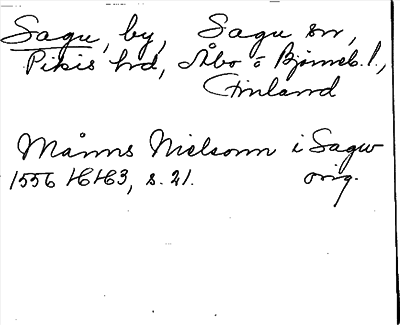 Sagu, by, Sagu sn,
Pikis hd, Åbo o Björneb. l.,
Finland
Måns Nielsonn i Sagw
1556 HH63, s. 21. orig.